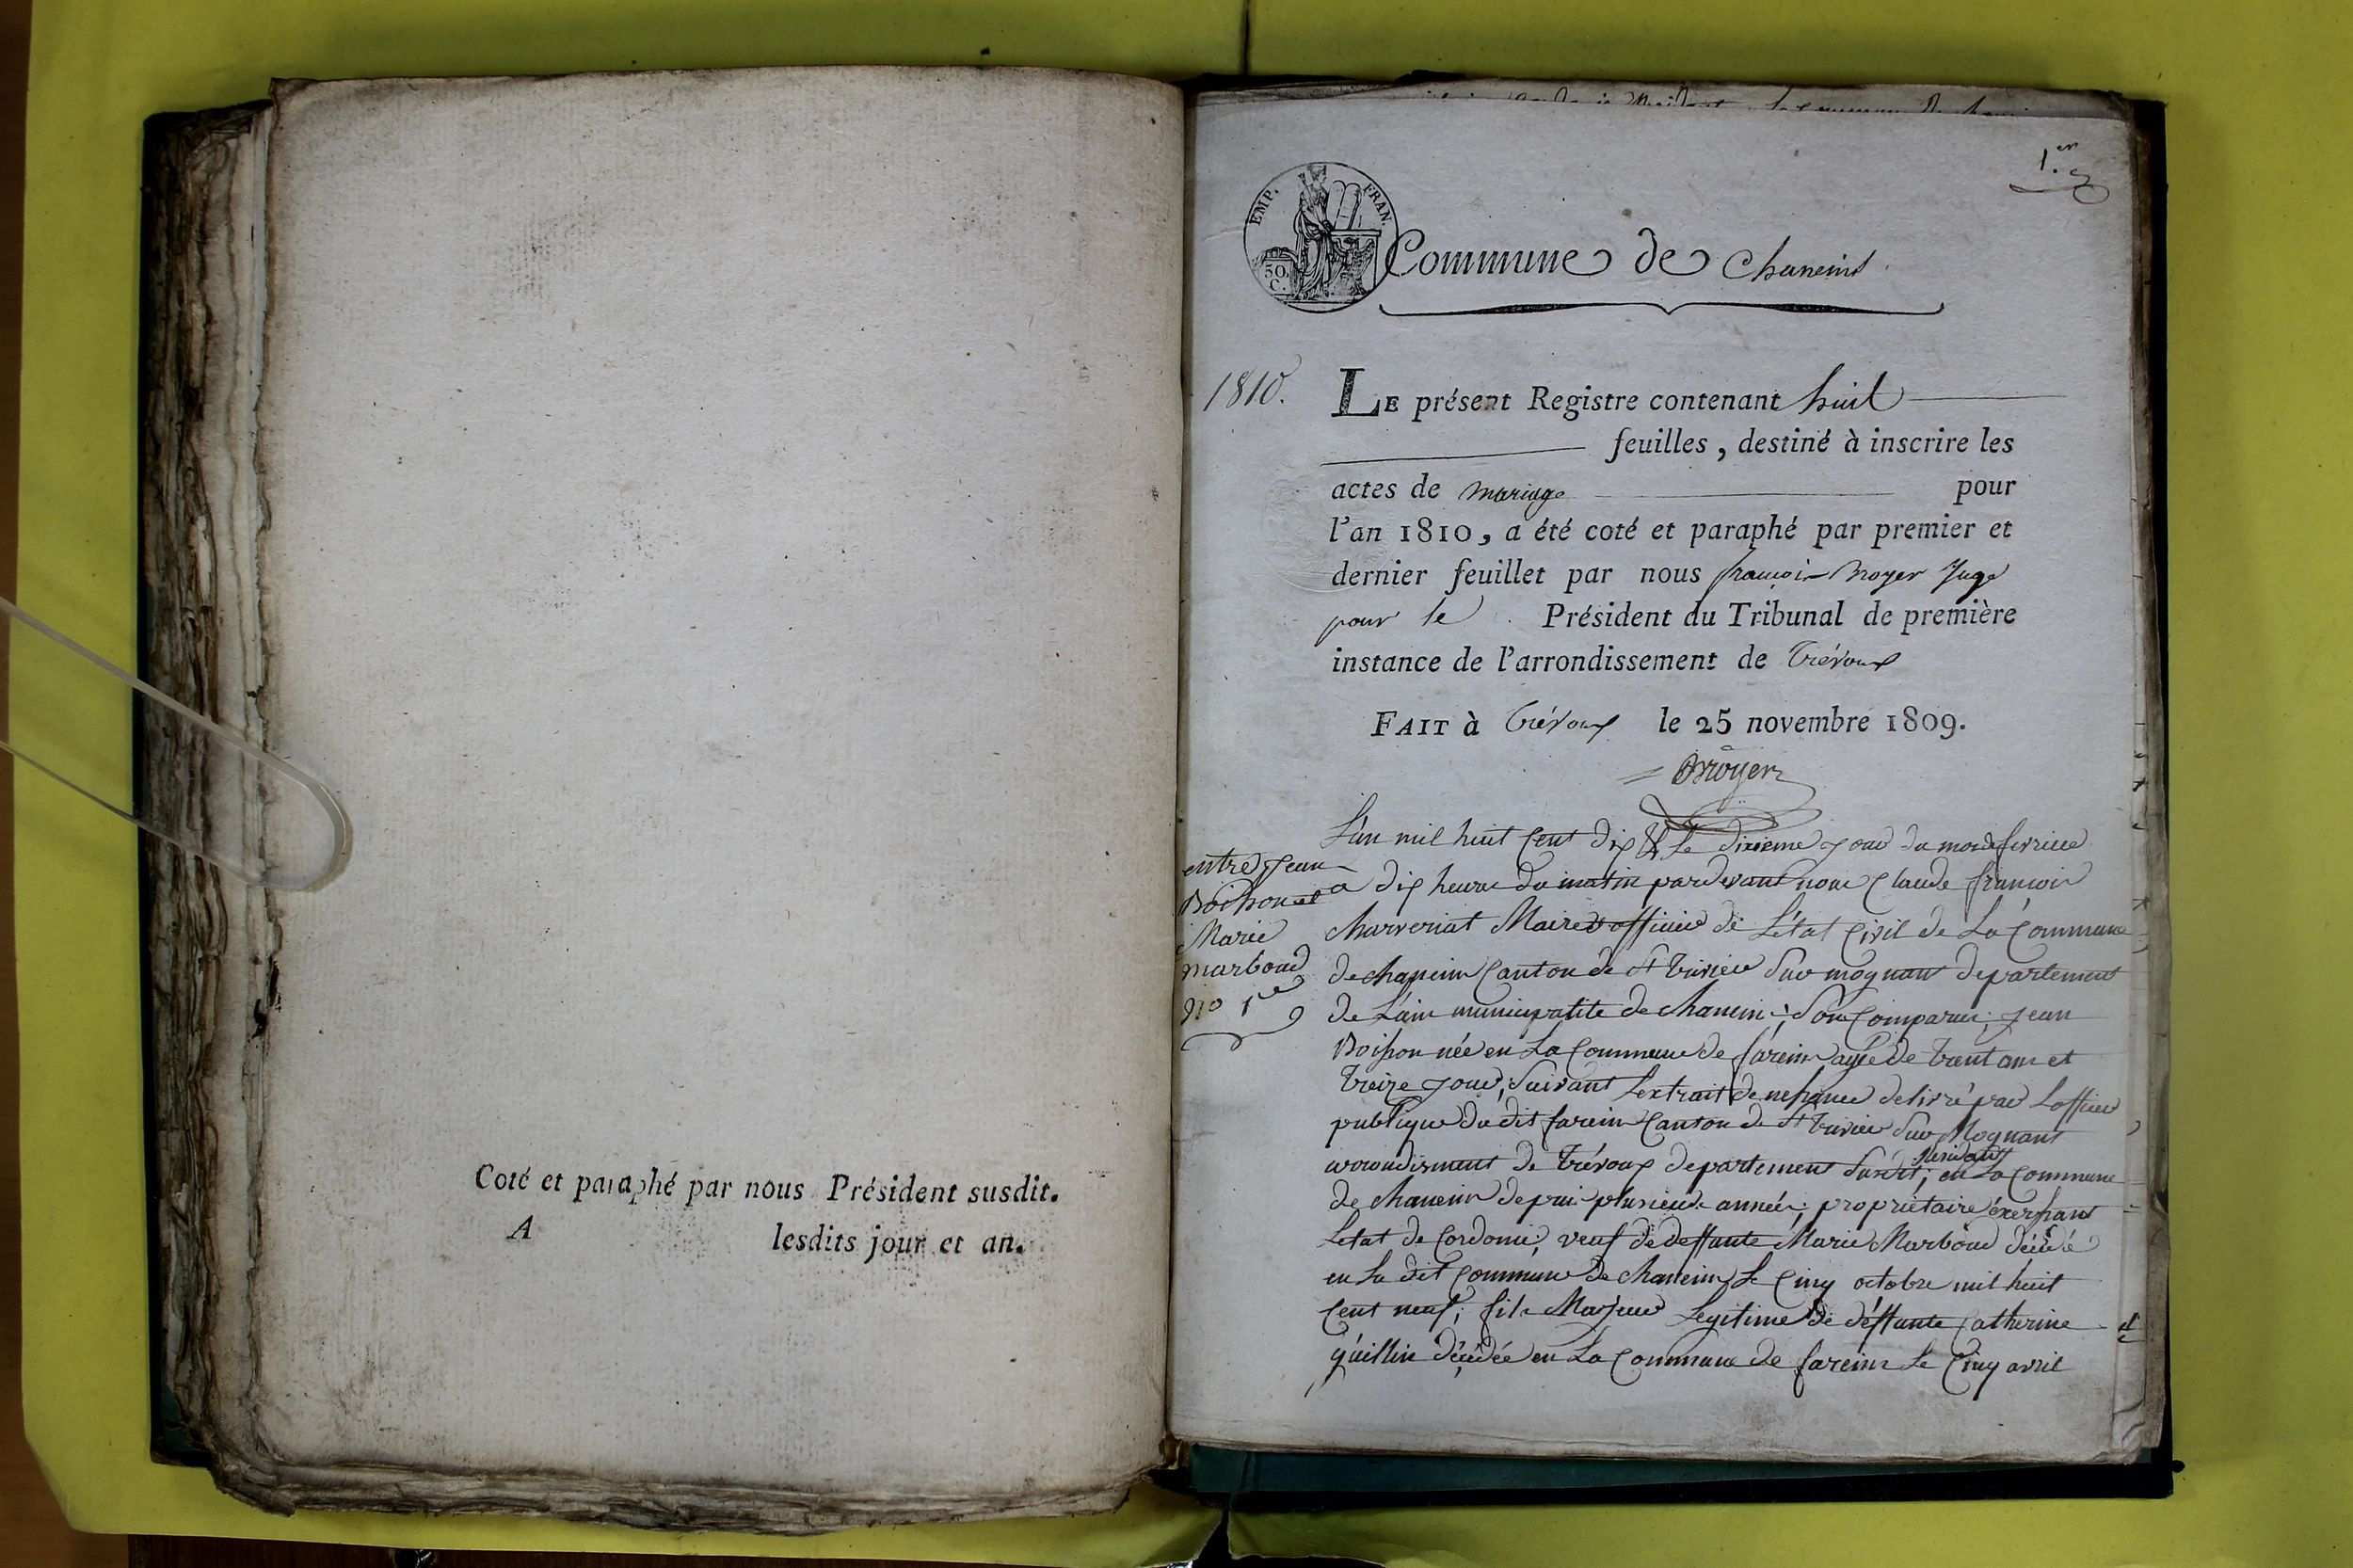 Coté et paraphé par nous Président susdit.
A lesdits jour et an.
1.er
EMP. FRAN.
50.
C.
Commune de Chaneins
1810.
LE présent Registre contenant huit
feuilles, destiné à inscrire les
actes de mariage pour
l'an 1810, a été coté et paraphé par premier et
dernier feuillet par nous françois moyer Juge
pour le Président du Tribunal de première
instance de l'arrondissement de Trévoux
FAIT à Trévoux le 25 novembre 1809.
Moyer
entre Jean
Boisson et
Marie
marboud
no 1er
L'an mil huit Cent dix & Le dixieme jour du mois de fevrier
a dix heures du matin pardevant nous Claude françois
charveriat Maire et officier de L'état Civil de La Commune
de chaneins Canton de St trivier Sur mognant departement
de L'ain municipalite de chaneins; Sont Comparus; Jean
Boisson née en La Commune de fareins agée de trent ans et
treize jour; Suivant Lextrait de nessance delivré par Lofficier
publique du dit fareins Canton de St trivier Sur Mognant
arrondisment de Trévoux departement Susdit; residant en La Commune
de chaneins depuis plusieurs années; propriétaire éxerssant
Létat de Cordonié; veuf de deffunte Marie Marboud décédé
en La dit Commune de chaneins Le Cinq octobre mil huit
Cent neuf; fils Majeur Legitime de déffunte Catherine et
guillin décédée en La Commune de fareins Le Cinq avril